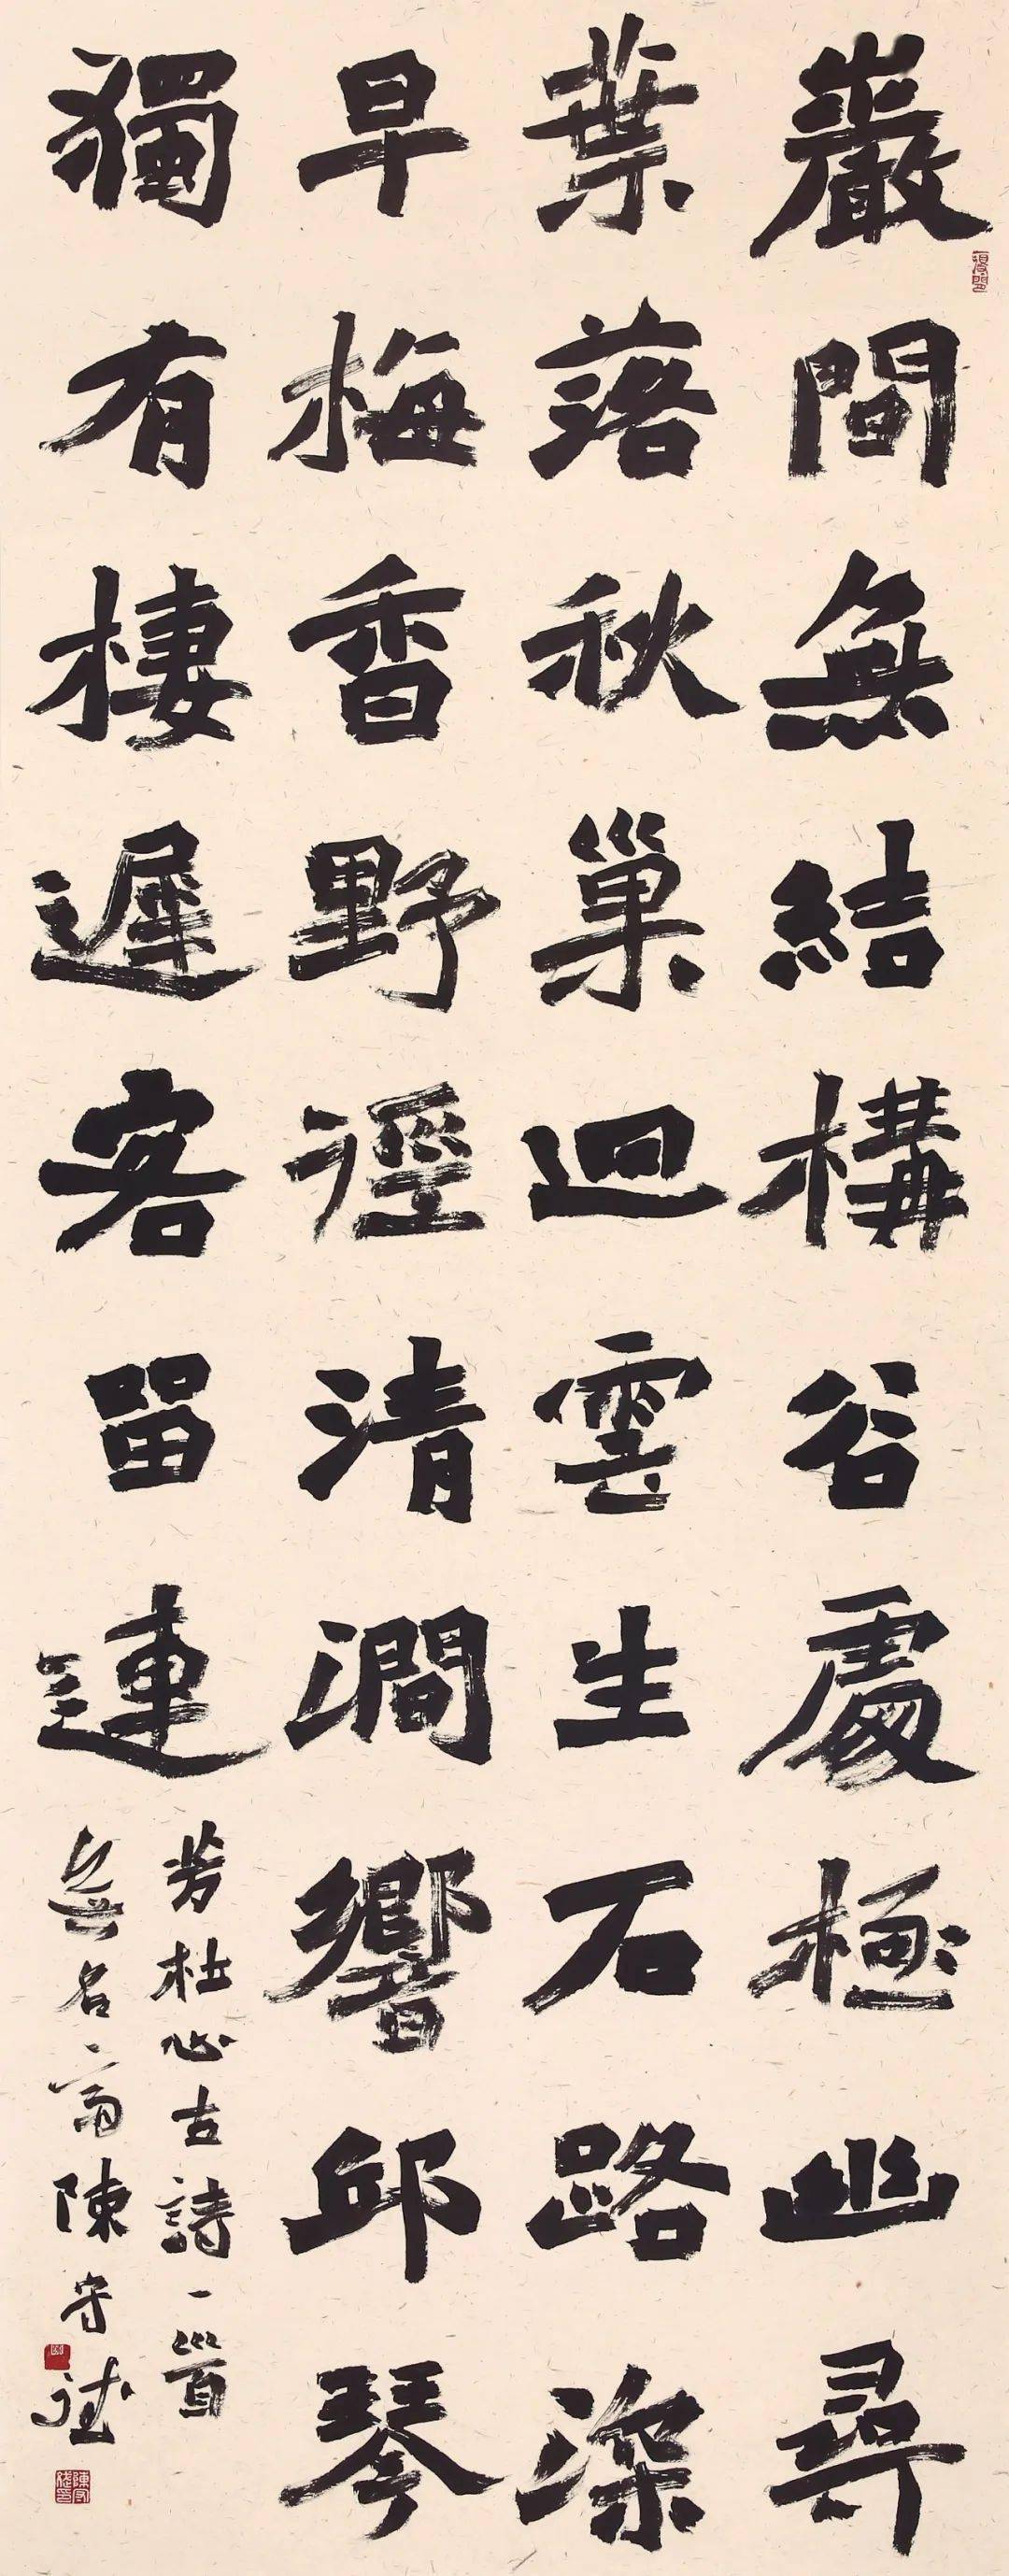 巖間無結構谷處極幽尋
葉落秋巢迥雲生石路深
早梅香野徑清澗響邱琴
獨有棲遲客留連
芳杜心古詩一首
無名齋陳守